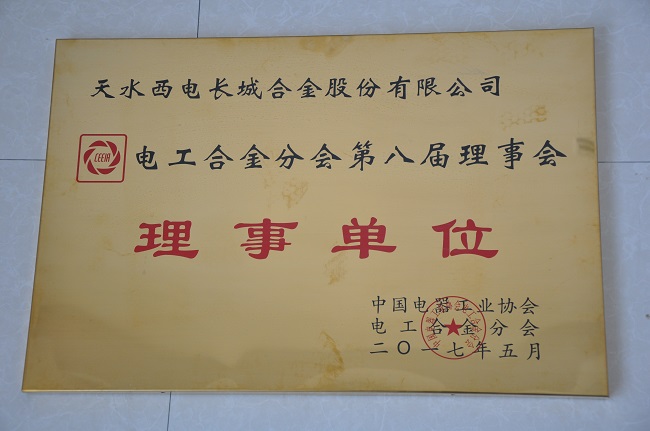 天水西电长城合金股份有限公司
CEEIA
电工合金分会第八届理事会
理事单位
中国电器工业协会
电工合金分会
二〇一七年五月